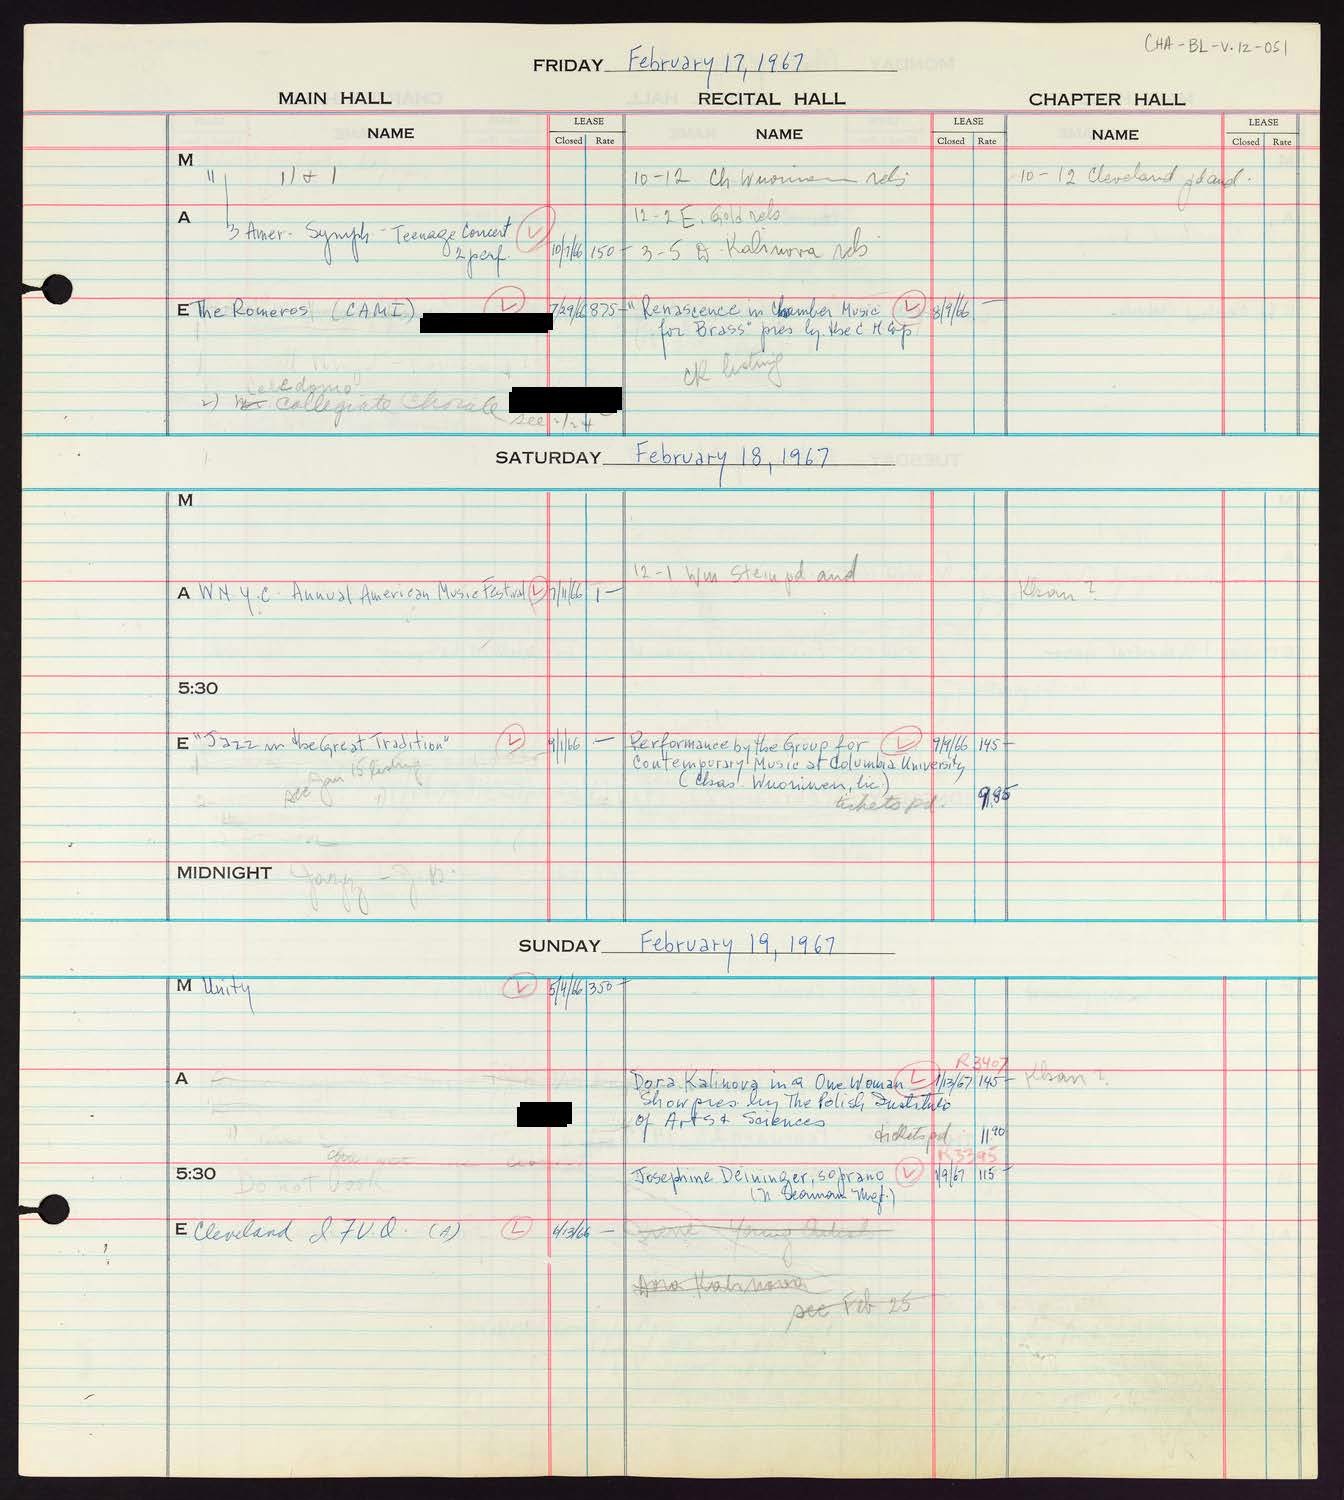 CHA-BL-V.12-051
FRIDAY February 17, 1967
MAIN HALL RECITAL HALL CHAPTER HALL
NAME LEASE Closed Rate NAME LEASE Closed Rate NAME LEASE Closed Rate
M
11 11 + 1
10-12 Ch Wuorinen rehs
10-12 Cleveland pd aud.
A
12-2 E. Gold rehs
3 Amer. Symph - Teenage Concert
2 perf. 10/7/66 150-
3-5 D. Kalinova reh
E The Romeros (CAMI) 7/29/66 875-
"Renascence in Chamber Music 8/9/66 -
for Brass" pres by the C M Grp
ck listing
2) Collegiate Chorale
see 2/24
SATURDAY February 18, 1967
M
12-1 Wm Stein pd aud
A WNYC. Annual American Music Festival 7/11/66 1-
5:30
E "Jazz in the Great Tradition" 9/1/66 -
Performance by the Group for 9/9/66 145-
Contemporary Music at Columbia University
(Chas. Wuorinen, lic.)
see Jan 15 listing
tickets pd. 9.85
MIDNIGHT
SUNDAY February 19, 1967
M Unity 5/4/66 350-
A
R3407
Dora Kalinova in a One Woman 1/13/67 145-
Show pres by The Polish Institute
of Arts & Sciences
tickets pd 11.90
R3395
5:30
Do not book
Josephine Deininger, soprano 1/9/67 115-
(N Seaman Mgt.)
E Cleveland (A) 6/13/66 -
Young Artist
Dora Kalinova
see Feb 25